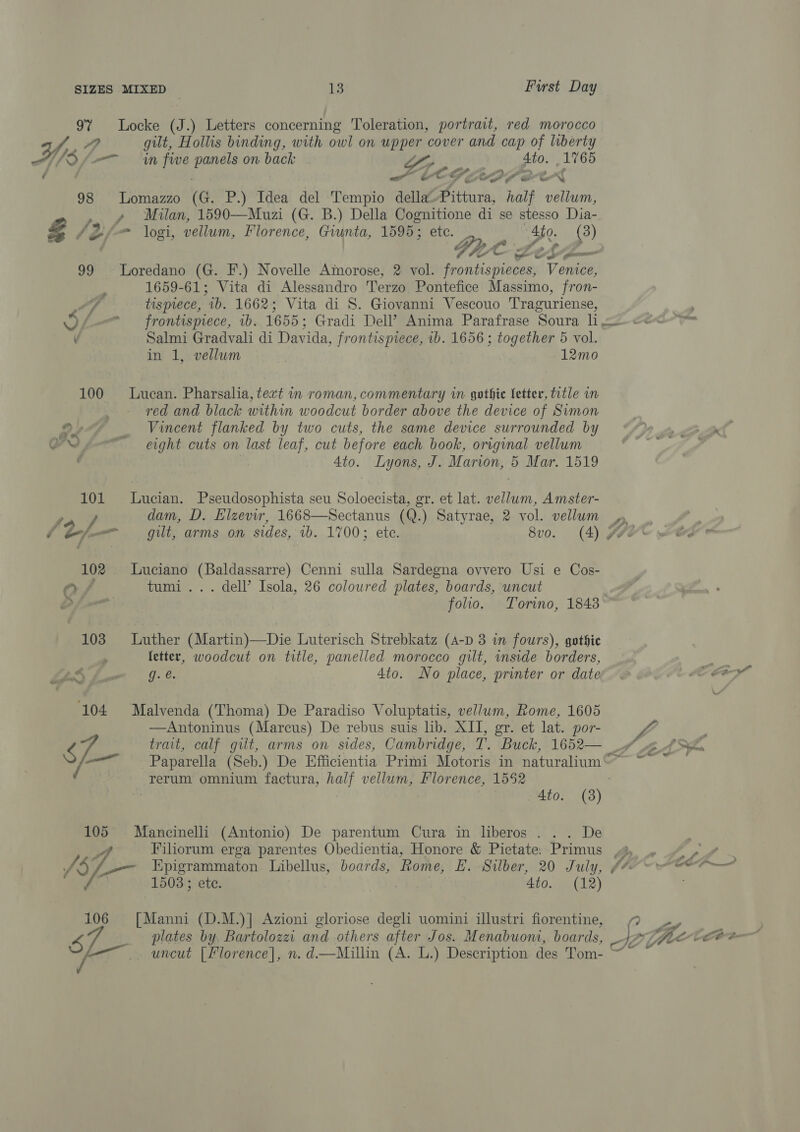 SIZES MIXED 13 First Day
97 Locke (J.) Letters concerning Toleration, portrait, red morocco
gilt, Hollis binding, with owl on upper cover and cap of liberty
in five panels on back 4to. 1765
98 Lomazzo (G. P.) Idea del Tempio della Pittura, half vellum,
Milan, 1590—Muzi (G. B.) Della Cognitione di se stesso Dia-
logi, vellum, Florence, Giunta, 1595; etc. 4to. (3)
99 Loredano (G. F.) Novelle Amorose, 2 vol. frontispieces, Venice,
1659-61; Vita di Alessandro Terzo Pontefice Massimo, fron-
tispiece, ib. 1662; Vita di S. Giovanni Vescouo Traguriense,
frontispiece, ib. 1655; Gradi Dell' Anima Parafrase Soura li
Salmi Gradvali di Davida, frontispiece, ib. 1656; together 5 vol.
in 1, vellum 12mo
100 Lucan. Pharsalia, text in roman, commentary in gothic letter, title in
red and black within woodcut border above the device of Simon
Vincent flanked by two cuts, the same device surrounded by
eight cuts on last leaf, cut before each book, original vellum
4to. Lyons, J. Marion, 5 Mar. 1519
101 Lucian. Pseudosophista seu Soloecista, gr. et lat. vellum, Amster-
dam, D. Elzevir, 1668—Sectanus (Q.) Satyrae, 2 vol. vellum
gilt, arms on sides, ib. 1700; etc. 8vo. (4)
102 Luciano (Baldassarre) Cenni sulla Sardegna ovvero Usi e Cos-
tumi ... dell' Isola, 26 coloured plates, boards, uncut
folio. Torino, 1843
103 Luther (Martin)—Die Luterisch Strebkatz (A-D 3 in fours), gothic
letter, woodcut on title, panelled morocco gilt, inside borders,
g. e. 4to. No place, printer or date
104 Malvenda (Thoma) De Paradiso Voluptatis, vellum, Rome, 1605
—Antoninus (Marcus) De rebus suis lib. XII, gr. et lat. por-
trait, calf gilt, arms on sides, Cambridge, T. Buck, 1652—
Paparella (Seb.) De Efficientia Primi Motoris in naturalium
rerum omnium factura, half vellum, Florence, 1552
4to. (3)
105 Mancinelli (Antonio) De parentum Cura in liberos . . . De
Filiorum erga parentes Obedientia, Honore & Pietate: Primus
Epigrammaton Libellus, boards, Rome, E. Silber, 20 July,
1503; etc. 4to. (12)
106 [Manni (D.M.)] Azioni gloriose degli uomini illustri fiorentine,
plates by Bartolozzi and others after Jos. Menabuoni, boards,
uncut [Florence], n. d.—Millin (A. L.) Description des Tom-